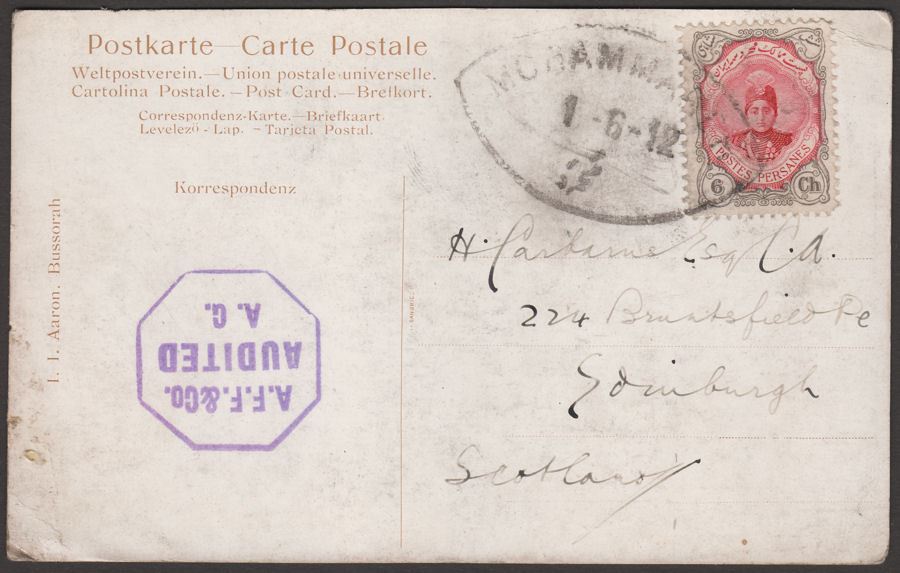 Postkarte—Carte Postale
Weltpostverein.—Union postale universelle.
Cartolina Postale. —Post Card.—Brefkort.
Correspondenz-Karte.—Briefkaart.
Levelező - Lap. – Tarjeta Postal.
Korrespondenz
I. I. Aaron. Bussorah
A.F.F. & Co.
AUDITED
A. C.
1 -6-12
POSTES PERSANES
6 Ch
H. Esq C.A.
224 Bruntsfield Pe
Edinburgh
Scotland